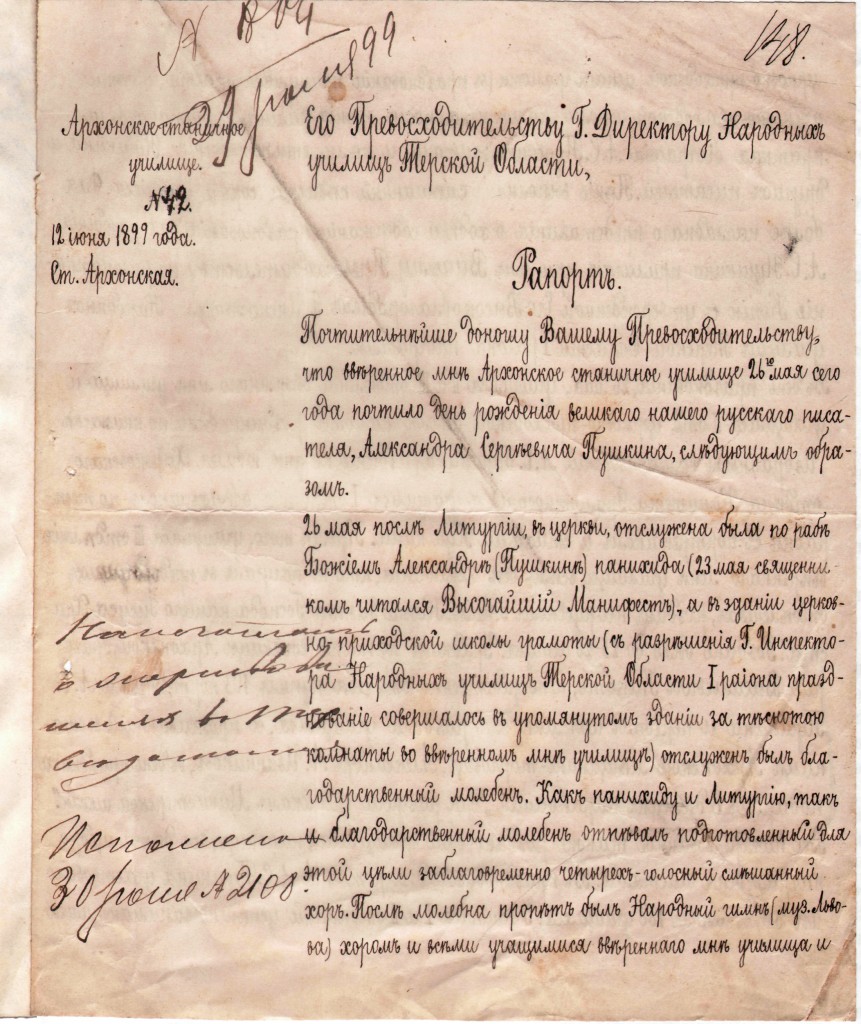 148.
29 июня 99
Архонское станичное
училище.
№ 42.
12 іюня 1899 года.
Ст. Архонская.
Его Превосходительству Г. Директору Народныхъ
училищъ Терской Области,
Рапортъ.
Почтительнѣйше доношу Вашему Превосходительству,
что ввѣренное мнѣ Архонское станичное училище 26го мая сего
года почтило день рожденія великаго нашего русскаго писа-
теля, Александра Сергѣевича Пушкина, слѣдующимъ обра-
зомъ.
26 мая послѣ Литургіи, въ церкви, отслужена была по рабѣ
Божіемъ Александрѣ (Пушкинѣ) панихида (23 мая священни-
комъ читался Высочайшій Манифестъ), а въ зданіи церков-
но приходской школы грамоты (съ разрѣшенія Г. Инспекто-
ра Народныхъ училищъ Терской Области I раіона празд-
нованіе совершалось въ упомянутомъ зданіи за тѣснотою
комнаты во ввѣренномъ мнѣ училищѣ) отслуженъ былъ бла-
годарственный молебенъ. Какъ панихиду и Литургію, такъ
и благодарственный молебенъ отпѣвалъ подготовленный для
этой цѣли заблаговременно четырехъ-голосный смѣшанный
хоръ. Послѣ молебна пропѣтъ былъ Народный гимнъ (муз. Льво-
ва) хоромъ и всѣми учащимися ввѣреннаго мнѣ училища и
Напечатать
о
въ
Исполнено
30 июня № 2108